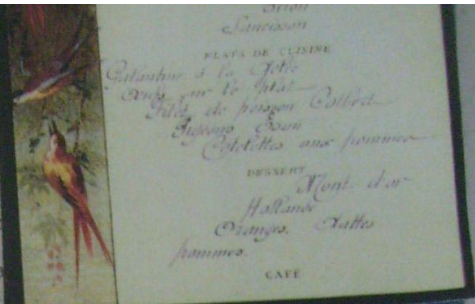 Saucisson
PLATS DE CUISINE
Galantine à la Gelée
Oeufs sur le plat
Filet de poisson Colbert
Pigeons
Côtelettes aux pommes
DESSERT
Mont d'or
Hollande
Oranges. Dattes
pommes.
CAFÉ